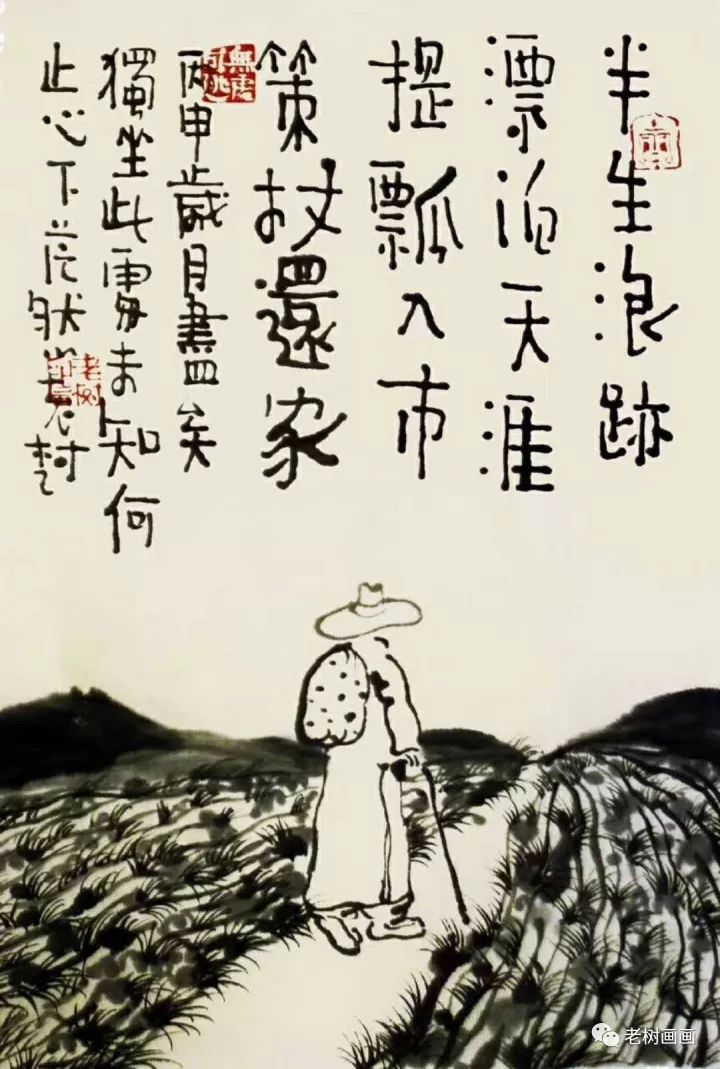 半生浪跡
漂泊天涯
提瓢入市
策杖還家
丙申歲月盡矣
獨坐此處未知何
止心下茫然
老树
老树画画